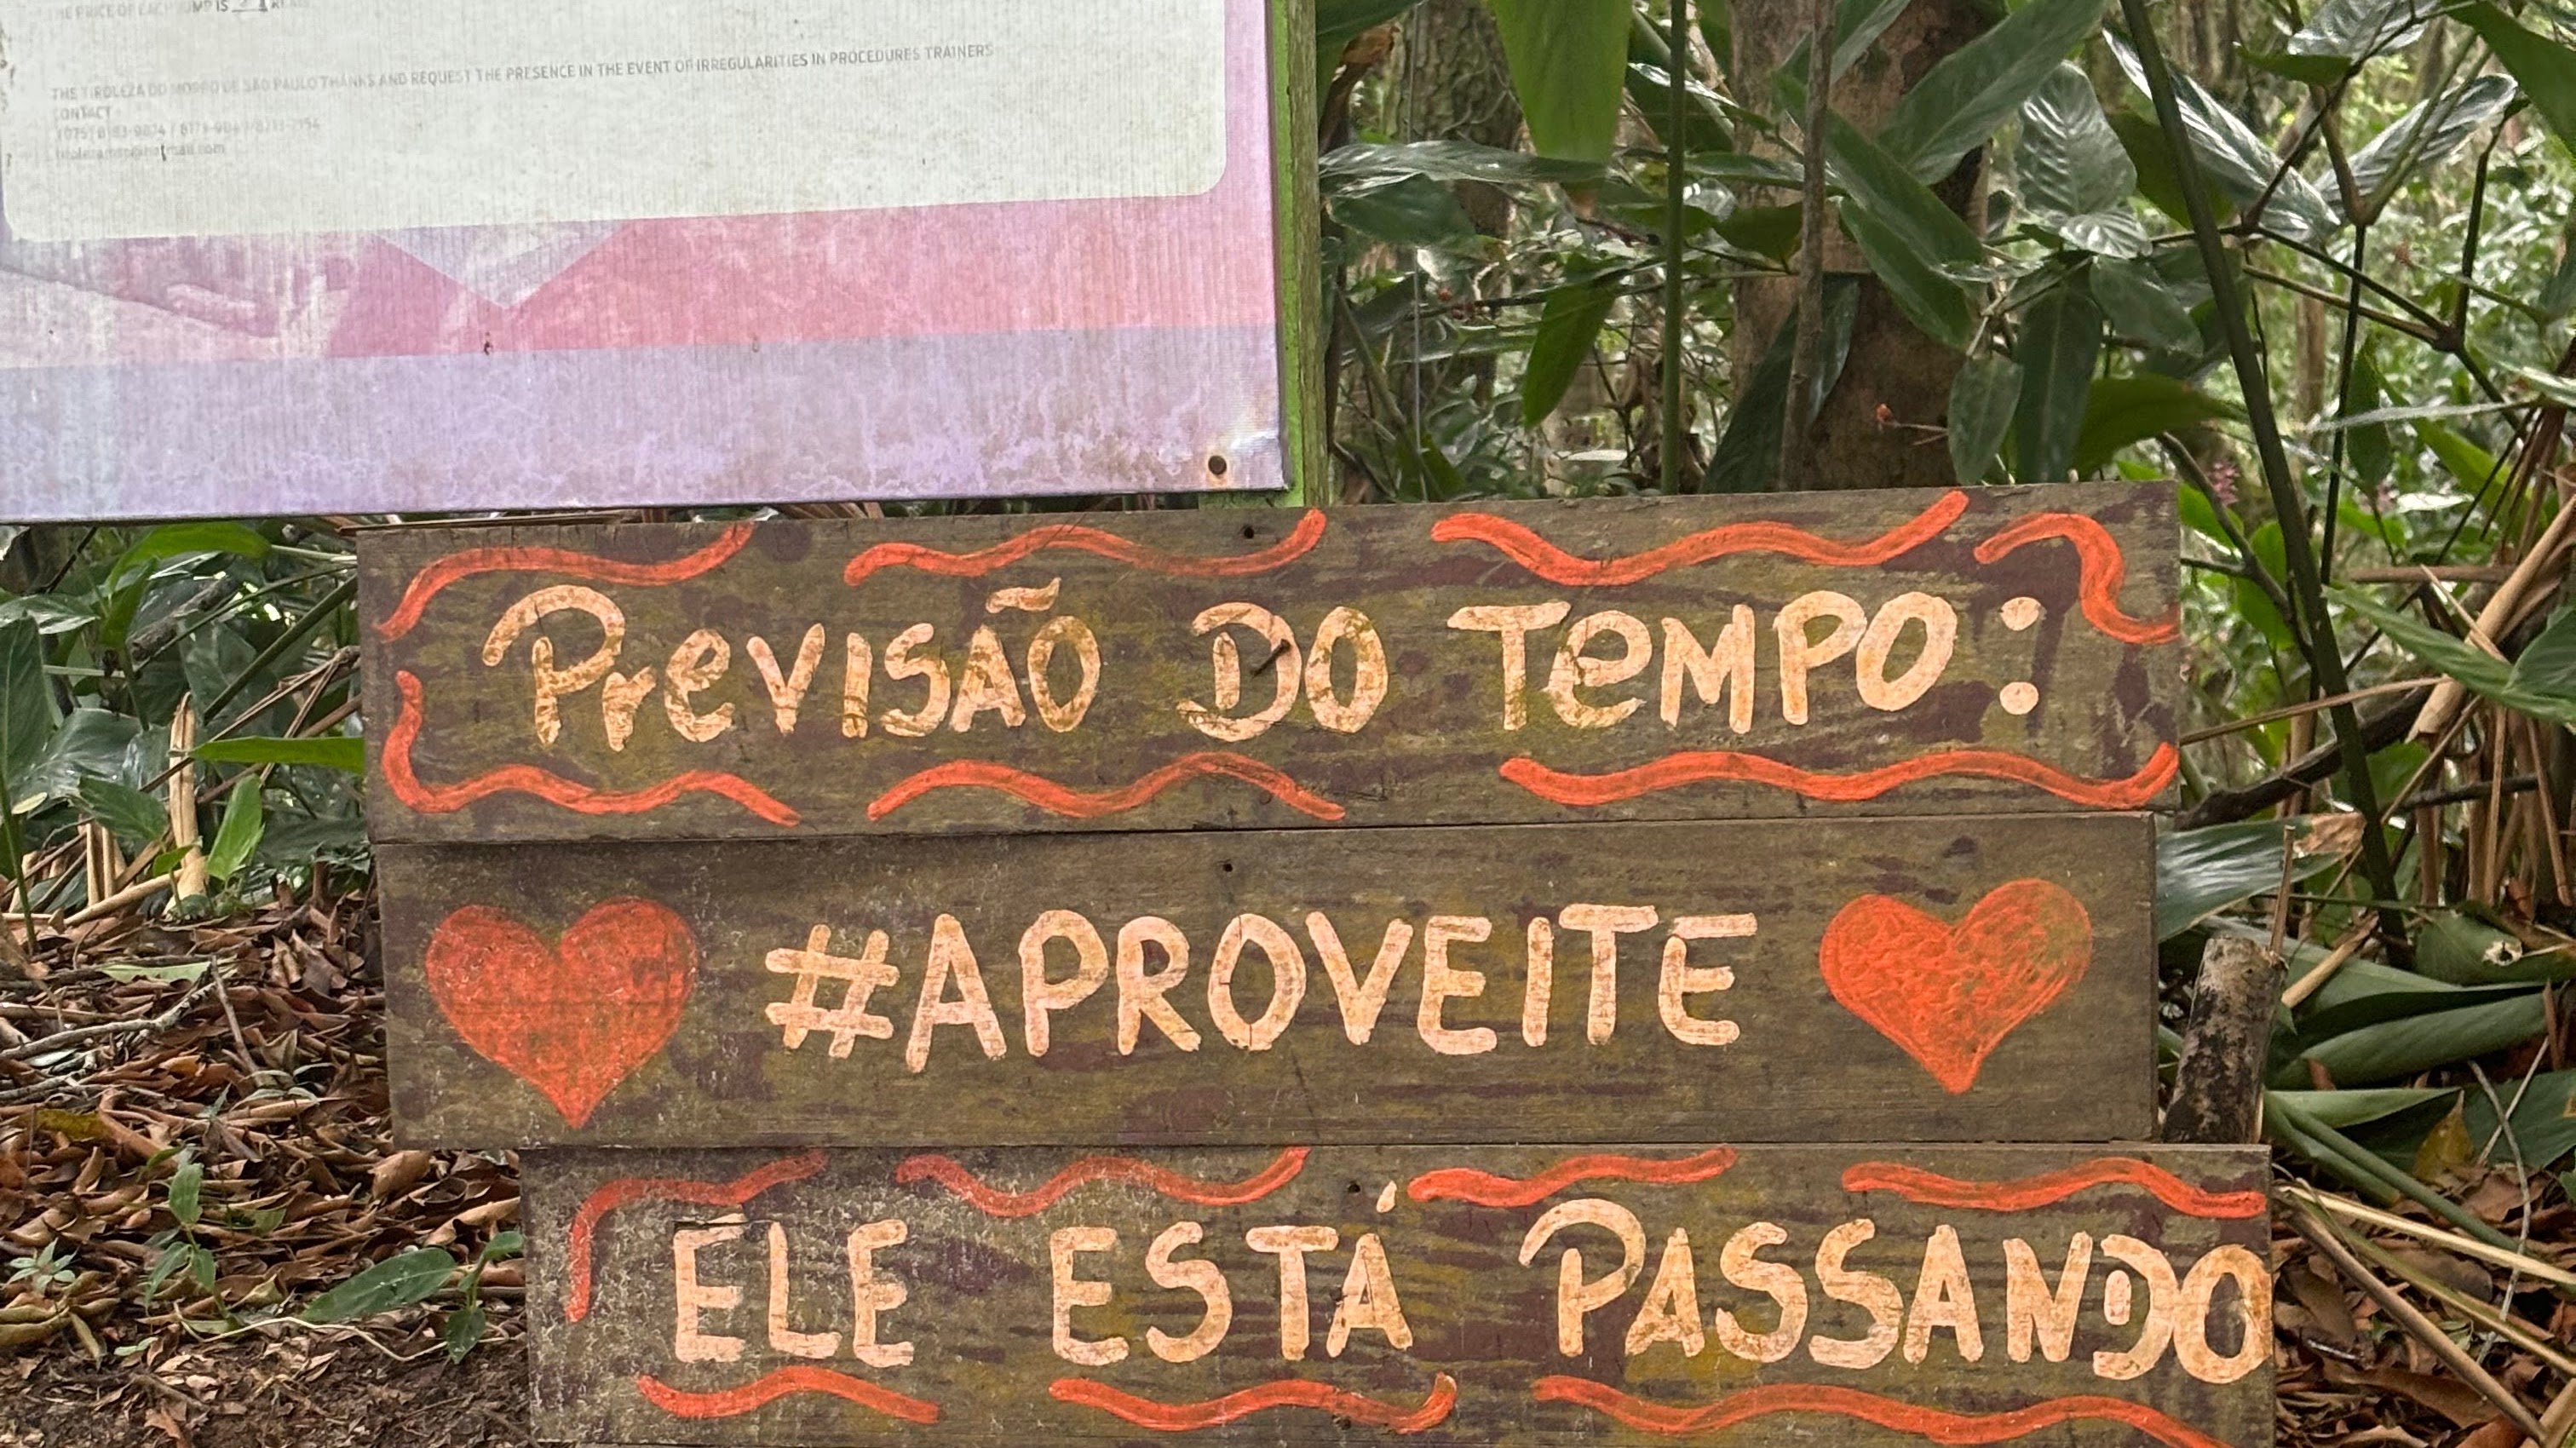 THE PRICE OF EACH JUMP IS
THE TIROLEZA DO MORRO DE SÃO PAULO THANKS AND REQUEST THE PRESENCE IN THE EVENT OF IRREGULARITIES IN PROCEDURES TRAINERS
CONTACT
PrevISÃO DO TeMPO:
#APROVEITE
ELE ESTÁ PASSANDO